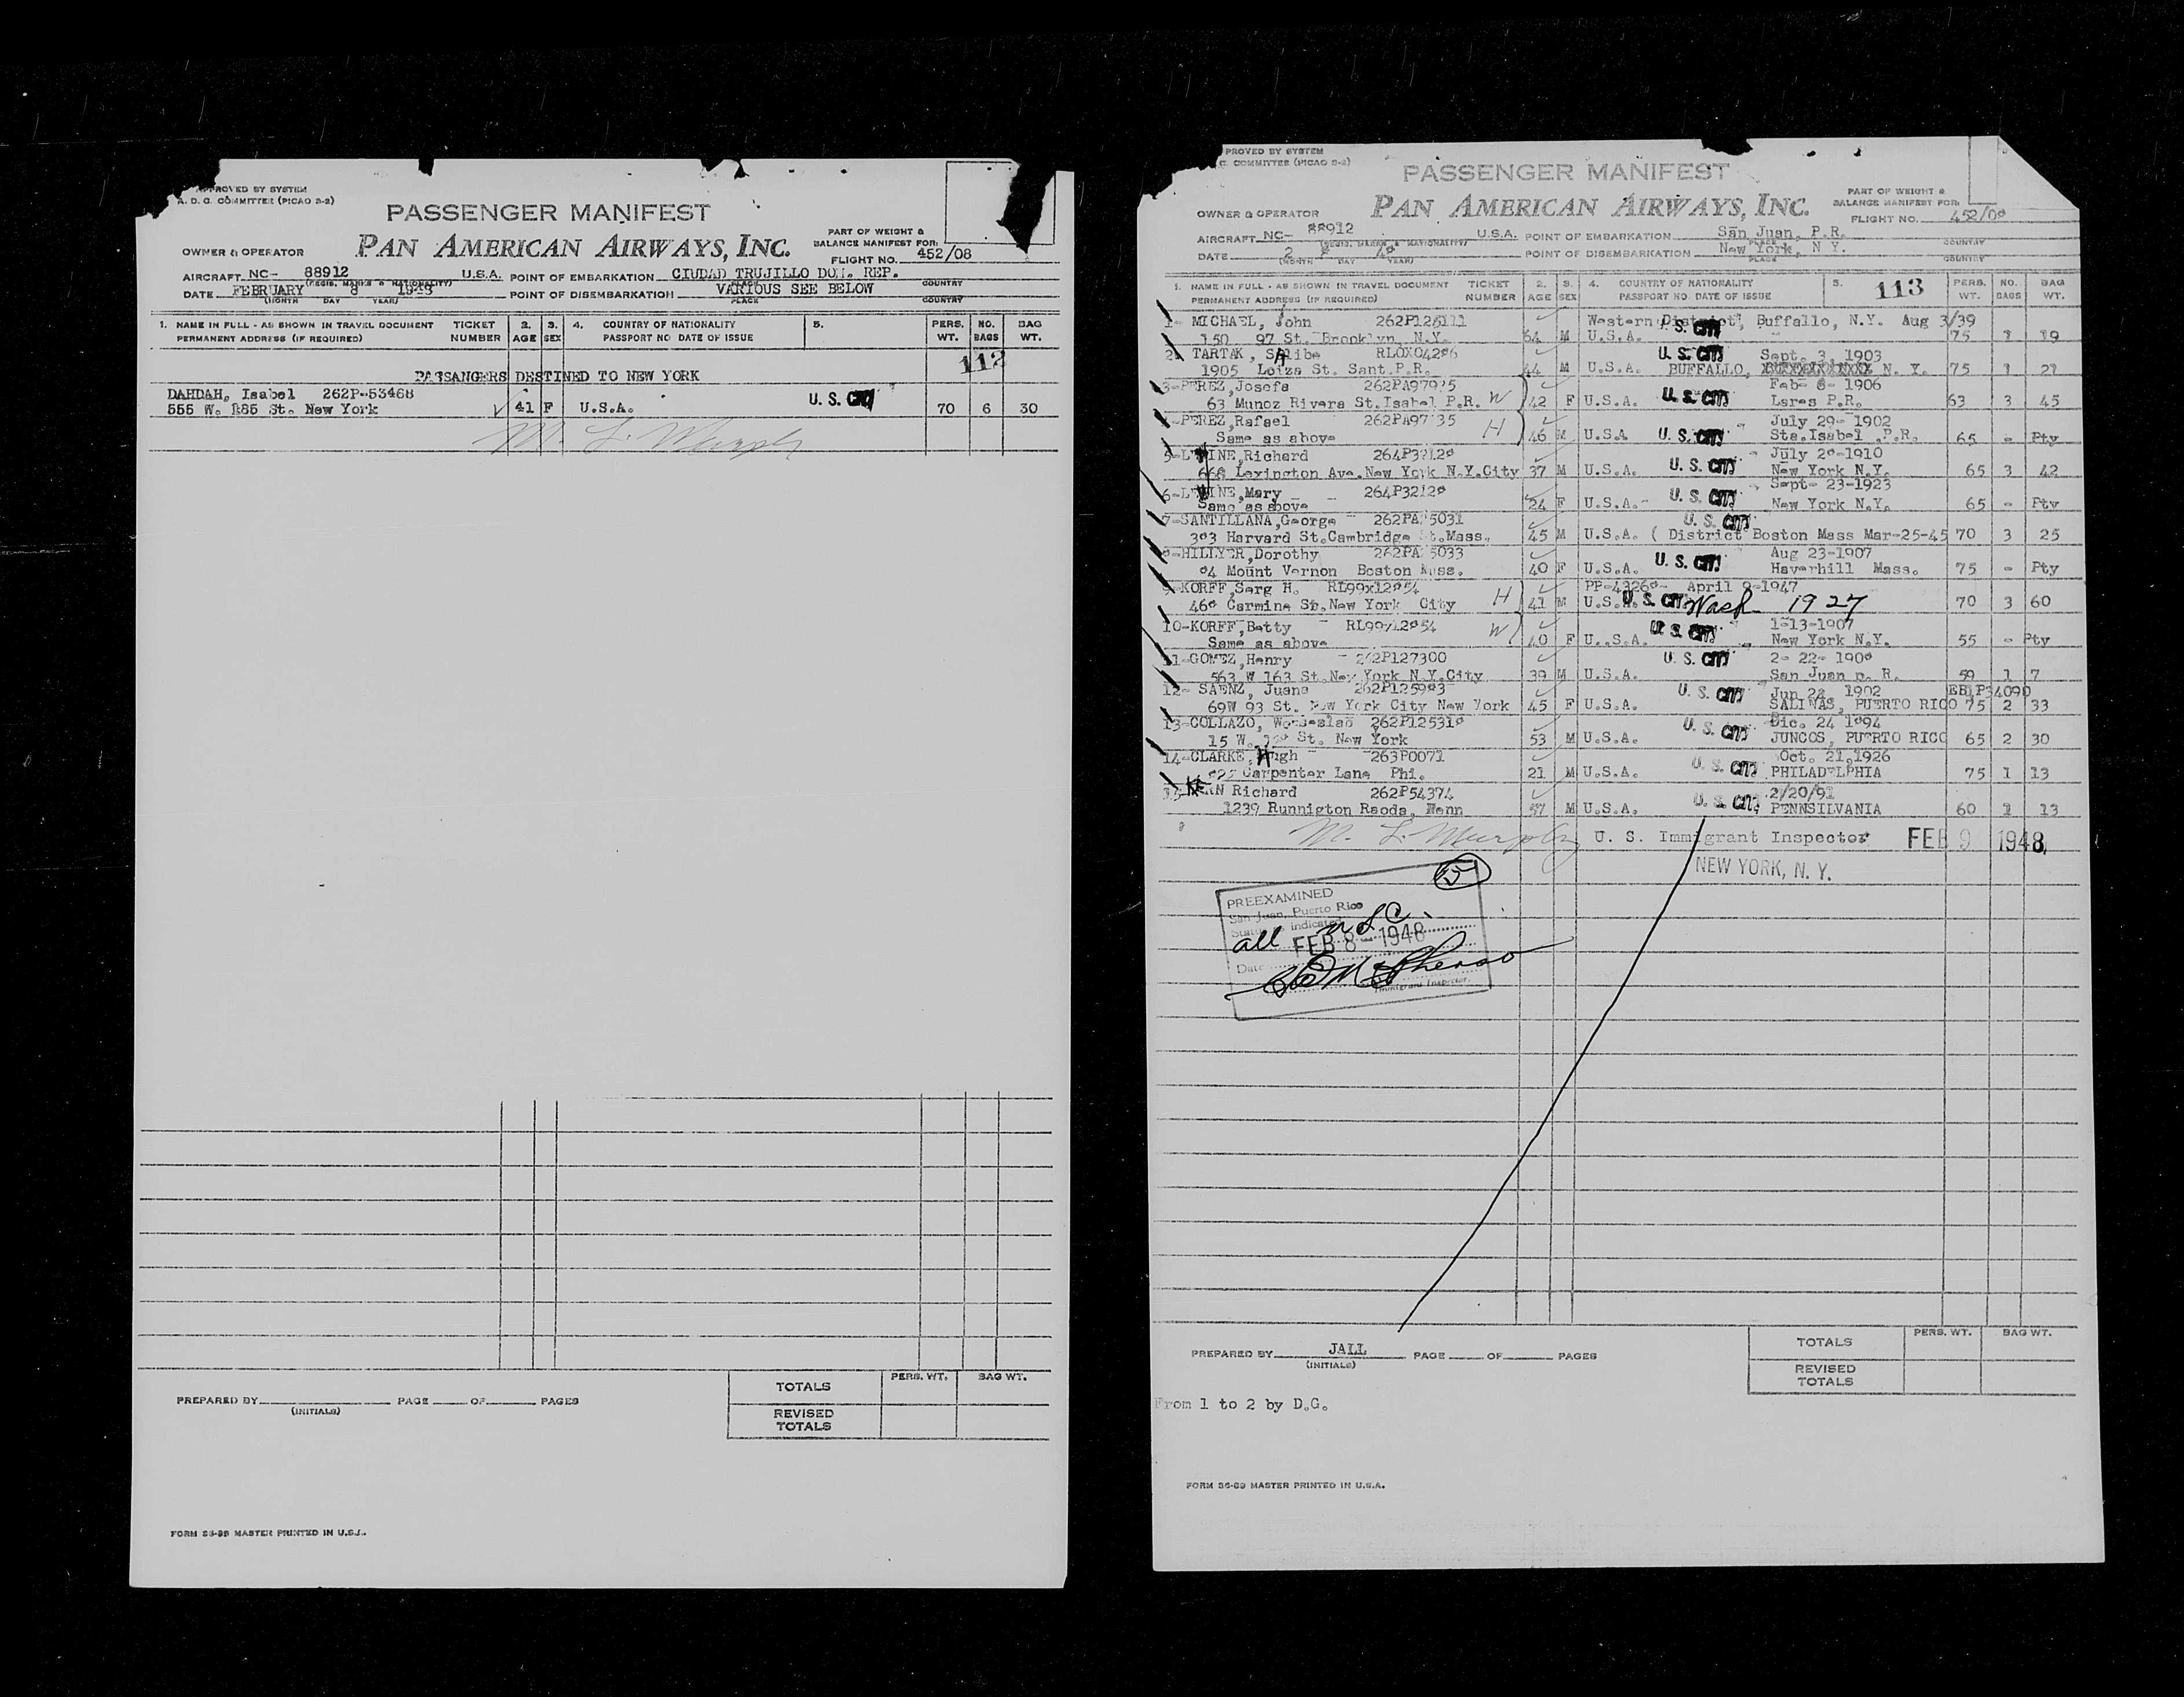 APPROVED BY SYSTEM
A. D. C. COMMITTEE (PICAO S-2)
PASSENGER MANIFEST
PAN AMERICAN AIRWAYS, INC.
PART OF WEIGHT &
BALANCE MANIFEST FOR:
FLIGHT NO. 452/08
OWNER & OPERATOR
AIRCRAFT NC- 88912 U.S.A. POINT OF EMBARKATION CIUDAD TRUJILLO DOM. REP.
(REGIS. MARKS & NATIONALITY) PLACE COUNTRY
DATE FEBRUARY 8 1948 POINT OF DISEMBARKATION VARIOUS SEE BELOW
(MONTH DAY YEAR) PLACE COUNTRY
1. NAME IN FULL - AS SHOWN IN TRAVEL DOCUMENT TICKET 2. 3. 4. COUNTRY OF NATIONALITY 5. PERS. NO. BAG
PERMANENT ADDRESS (IF REQUIRED) NUMBER AGE SEX PASSPORT NO DATE OF ISSUE WT. BAGS WT.
112
PASSANGERS DESTINED TO NEW YORK
DAHDAH, Isabel 262P-53468 U. S. CIT
555 W. 185 St. New York 41 F U.S.A. 70 6 30
M. L. Murphy
TOTALS PERS. WT. BAG WT.
PREPARED BY PAGE OF PAGES
(INITIALS)
REVISED
TOTALS
FORM 36-99 MASTER PRINTED IN U.S.A.
PROVED BY SYSTEM
C. COMMITTEE (PICAO S-2)
PASSENGER MANIFEST
PAN AMERICAN AIRWAYS, INC.
PART OF WEIGHT &
BALANCE MANIFEST FOR:
FLIGHT NO. 452/08
OWNER & OPERATOR
AIRCRAFT NC- 88912 U.S.A. POINT OF EMBARKATION San Juan, P.R.
(REGIS. MARKS & NATIONALITY) PLACE COUNTRY
DATE 2 8 48 POINT OF DISEMBARKATION New York, N Y.
(MONTH DAY YEAR) PLACE COUNTRY
1. NAME IN FULL - AS SHOWN IN TRAVEL DOCUMENT TICKET 2. 3. 4. COUNTRY OF NATIONALITY 5. 113 PERS. NO. BAG
PERMANENT ADDRESS (IF REQUIRED) NUMBER AGE SEX PASSPORT NO. DATE OF ISSUE WT. BAGS WT.
1- MICHAEL, John 262P126111 Western District, Buffallo, N.Y. Aug 3/39
150 97 St. Brooklyn, N.Y. 64 M U.S.A. U. S. CIT 75 1 19
2- TARTAK, Salibe U. S. CIT Sept. 3, 1903
1905 Loiza St. Sant.P.R. 44 M U.S.A. BUFFALLO, N. Y. 75 1 21
3-PEREZ,Josefa U. S. CIT Feb- 8- 1906
63 Munoz Rivera St.Isabel P.R. W 42 F U.S.A. Lares P.R. 63 3 45
-PEREZ,Rafael July 29- 1902
Same as above H 46 M U.S.A U. S. CIT Sta.Isabel ,P.R. 65 - Pty
5-LEVINE,Richard July 28-1910
668 Lexington Ave.New York N.Y.City 37 M U.S.A. U. S. CIT New York N.Y. 65 3 42
6-LEVINE,Mary Sept- 23-1923
Same as above 24 F U.S.A.- U. S. CIT New York N.Y. 65 - Pty
7-SANTILLANA,George U. S. CIT
303 Harvard St.Cambridge Mass. 45 M U.S.A. ( District Boston Mass Mar-25-45 70 3 25
8-HILLYER,Dorothy Aug 23-1907
84 Mount Vernon Boston Mass. 40 F U.S.A. U. S. CIT Haverhill Mass. 75 - Pty
9-KORFF,Serg H. RL99x12854 PP-43268- April 9-1947
460 Carmine St.New York City H 41 M U.S.A. U. S. CIT Wash 1927 70 3 60
10-KORFF,Betty RL99x12854 1-13-1907
Same as above W 40 F U..S.A. U. S. CIT New York N.Y. 55 - Pty
11-GOMEZ,Henry 262P127300 U. S. CIT 2- 22- 1908
563 W 163 St.New York N.Y.City 39 M U.S.A. San Juan P. R. 59 1 7
12- SAENZ, Juana 262P125983 U. S. CIT Jun 24 1902 EB1P34090
69W 93 St. New York City New York 45 F U.S.A. SALINAS, PUERTO RICO 75 2 33
13-COLLAZO, Wenseslao 262P125318 U. S. CIT Dic. 24 1894
15 W. St. New York 53 M U.S.A. JUNCOS, PUERTO RICO 65 2 30
14-CLARKE, Hugh 263P0071 Oct. 21,1926
Carpenter Lane Phi. 21 M U.S.A. U. S. CIT PHILADELPHIA 75 1 13
15 KERN Richard 262P54374 2/20/91
1239 Runnigton Raods, Wenn 57 M U.S.A. U. S. CIT. PENNSILVANIA 60 1 13
M. L. Murphy U. S. Immigrant Inspector FEB 9 1948
NEW YORK, N. Y.
PREEXAMINED
San Juan, Puerto Rico
Status indicated
all USC.
Date FEB 8 - 1948
Immigrant Inspector.
TOTALS PERS. WT. BAG WT.
PREPARED BY JALL PAGE OF PAGES
(INITIALS)
REVISED
TOTALS
From 1 to 2 by D.G.
FORM 36-99 MASTER PRINTED IN U.S.A.